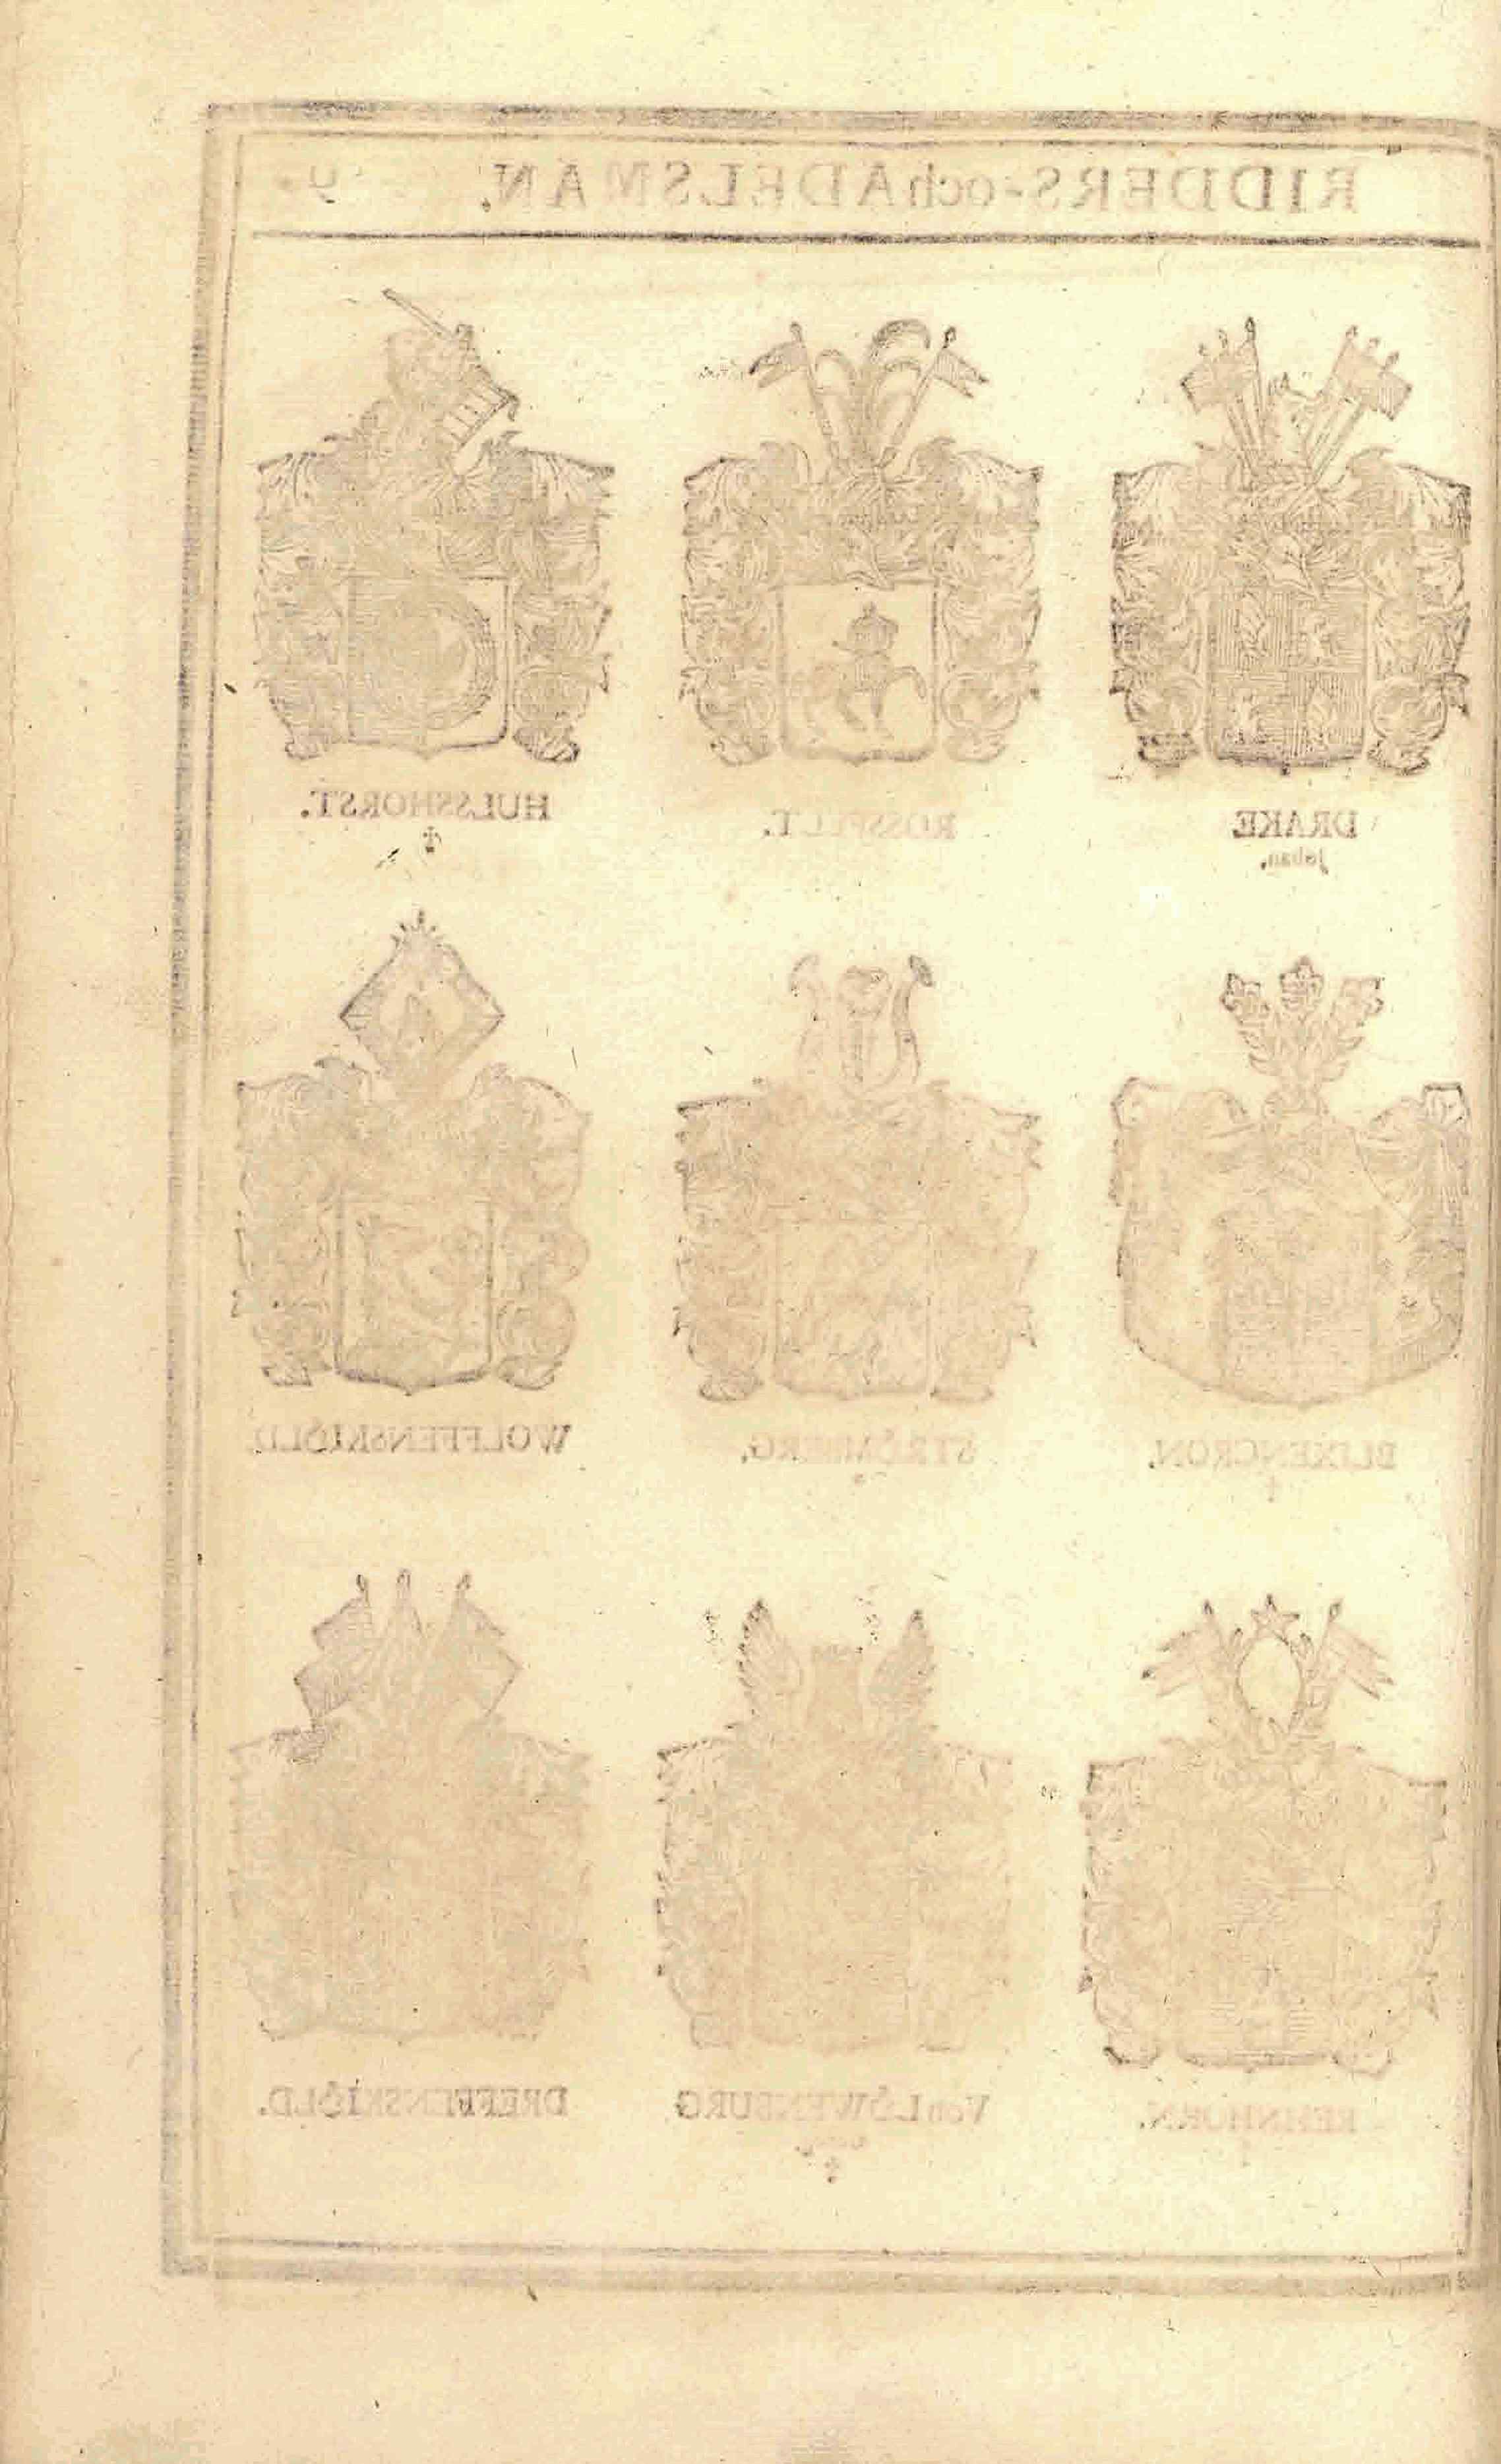 RIDDERS-och ADELSMÄN. 9.
DRAKE
Johan.
ROSSFELT.
HULSSHORST.
BLIXENCRON.
STRÖMBERG.
WOLFFENSKIÖLD.
REHNHORN.
Von LÖWENBURG
DREFFENSKIÖLD.